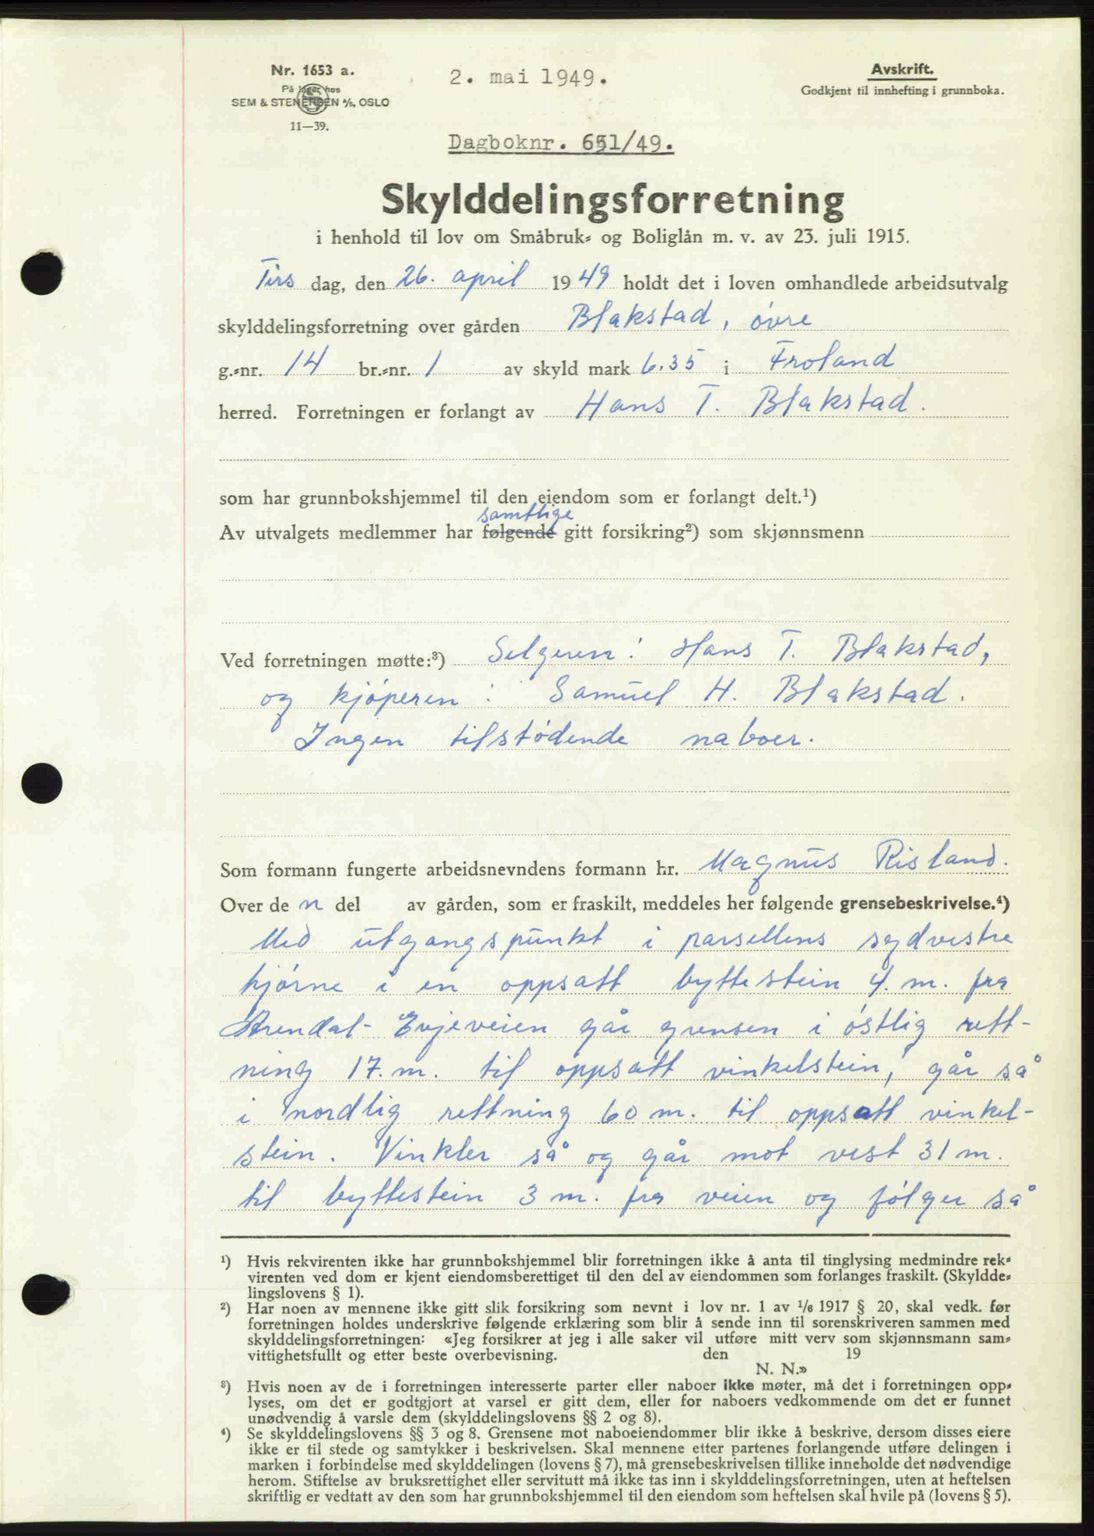 Nr. 1653 a.
På lager hos
SEM & STENERSEN A/S, OSLO
11—39.
2. mai 1949.
Avskrift.
Godkjent til innhefting i grunnboka.
Dagboknr. 651/49.
Skylddelingsforretning
i henhold til lov om Småbruk- og Boliglån m. v. av 23. juli 1915.
Tirs dag, den 26. april 1949 holdt det i loven omhandlede arbeidsutvalg
skylddelingsforretning over gården Blakstad, øvre
g.-nr. 14 br.-nr. 1 av skyld mark 6.35 i Froland
herred. Forretningen er forlangt av Hans T. Blakstad.
som har grunnbokshjemmel til den eiendom som er forlangt delt.¹)
samtlige
Av utvalgets medlemmer har følgende gitt forsikring²) som skjønnsmenn
Ved forretningen møtte:³) Selgeren: Hans T. Blakstad,
og kjøperen: Samuel H. Blakstad.
Ingen tilstødende naboer.
Som formann fungerte arbeidsnevndens formann hr. Magnus Risland.
Over de n del av gården, som er fraskilt, meddeles her følgende grensebeskrivelse.⁴)
Med utgangspunkt i parsellens sydvestre
hjørne i en oppsatt byttestein 4. m. fra
Arendal- Evjeveien går grensen i østlig rett-
ning 17. m. til oppsatt vinkelstein, går så
i nordlig rettning 60 m. til oppsatt vinkel-
stein. Vinkler så og går mot vest 31 m.
til byttestein 3 m. fra veien og følger så
¹) Hvis rekvirenten ikke har grunnbokshjemmel blir forretningen ikke å anta til tinglysing medmindre rek-
virenten ved dom er kjent eiendomsberettiget til den del av eiendommen som forlanges fraskilt. (Skyldde-
lingslovens § 1).
²) Har noen av mennene ikke gitt slik forsikring som nevnt i lov nr. 1 av 1/6 1917 § 20, skal vedk. før
forretningen holdes underskrive følgende erklæring som blir å sende inn til sorenskriveren sammen med
skylddelingsforretningen: «Jeg forsikrer at jeg i alle saker vil utføre mitt verv som skjønnsmann sam-
vittighetsfullt og etter beste overbevisning. den 19
N. N.»
³) Hvis noen av de i forretningen interesserte parter eller naboer ikke møter, må det i forretningen opp-
lyses, om det er godtgjort at varsel er gitt dem, eller for naboers vedkommende om det er funnet
unødvendig å varsle dem (skylddelingslovens §§ 2 og 8).
⁴) Se skylddelingslovens §§ 3 og 8. Grensene mot naboeiendommer blir ikke å beskrive, dersom disses eiere
ikke er til stede og samtykker i beskrivelsen. Skal mennene etter partenes forlangende utføre delingen i
marken i forbindelse med skylddelingen (lovens § 7), må grensebeskrivelsen tillike inneholde det nødvendige
herom. Stiftelse av bruksrettighet eller servitutt må ikke tas inn i skylddelingsforretningen, uten at heftelsen
skriftlig er vedtatt av den som har grunnbokshjemmel til den eiendom som heftelsen skal hvile på (lovens § 5).